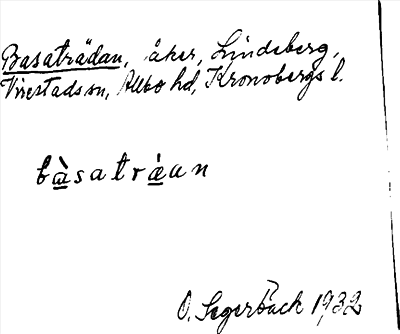 Basaträdan, åker, Lindeberg,
Virestads sn, Allbo hd, Kronobergs l.
bàsatrǽan
O. Segerback 1932